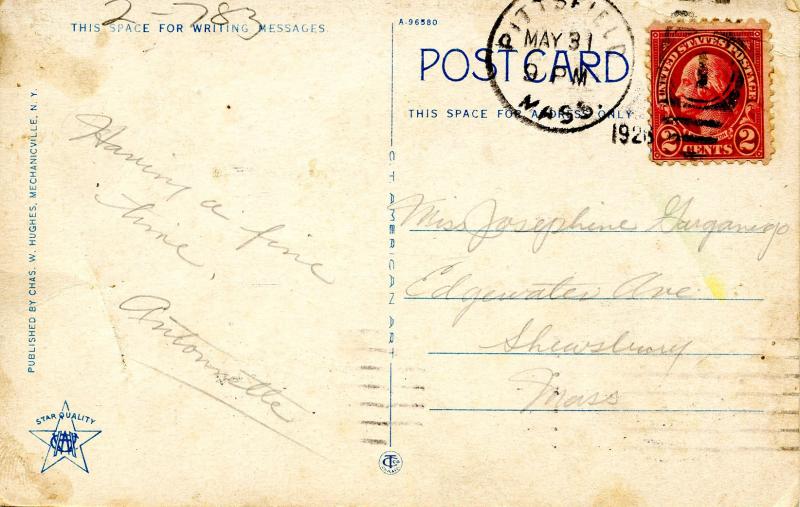 2-783
THIS SPACE FOR WRITING MESSAGES.
A-96580
POST CARD
THIS SPACE FOR ADDRESS ONLY
PITTSFIELD
MAY 31
9 PM
MASS.
192
UNITED STATES POSTAGE
2 CENTS 2
PUBLISHED BY CHAS. W. HUGHES, MECHANICVILLE, N. Y.
Having a fine
time,
Antonnette
C T AMERICAN ART
Miss Josephine Garganigo
Edgewater Ave.
Shewsbury
Mass
STAR QUALITY